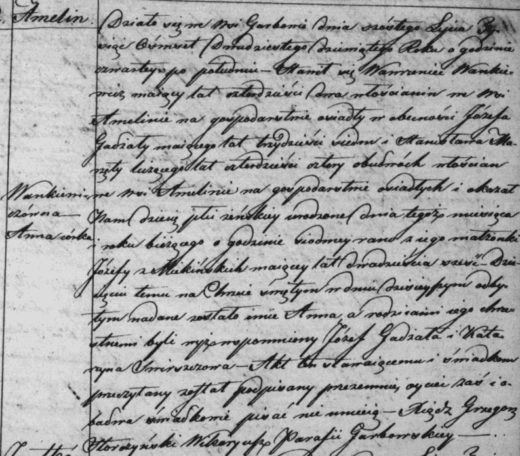 Amelin.
Działo się w Wsi Garbowie dnia szóstego Lipca Ty-
siąc Ośmset Dwudziestego dziewiątego Roku o godzinie
czwartey po południu – Stawił się Wawrzeniec Wankie-
wicz maiący lat czterdzieści dwa włościanin we Wsi
Amelinie na gospodarstwie osiadły w obecności Józefa
Gadzały maiącego lat trzydzieści siedm i Stanisława
liczącego lat czterdzieści cztery obudwóch włościan
we Wsi Amelinie na gospodarstwie osiadłych i okazał
Nam dziecię płci żeńskiey urodzone dnia tegoż miesiąca
i roku bieżącego o godzinie siodmey rano z iego małżonki
Józefy z maiącey lat dwadzieścia sześć – Dzie-
cięciu temu na Chrzcie świętym w dniu dzisieyszym odby-
tym nadane zostało imie Anna, a rodzicami iego chrze-
stnemi byli wyżwspomniony Józef Gadzała i Kata-
rzyna – Akt ten stawaiącemu i świadkom
przeczytany został podpisany przezemnie, oyciec zaś i o-
badwa świadkowie pisać nie umieią – Xiądz Grzegorz
Storczyński Wikaryusz Parafii Garbowskiey –
Wankiewi-
czówna
Anna córka